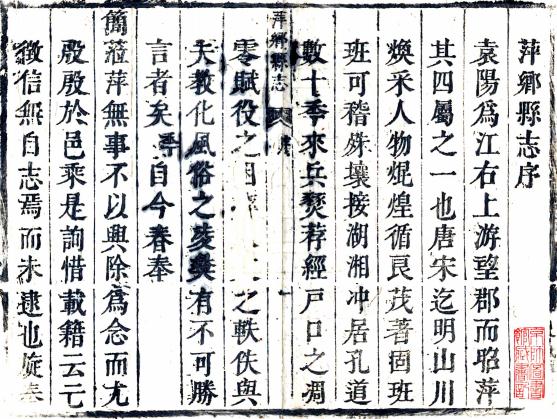 萍鄉縣志序
袁陽爲江右上游望郡而昭萍
其四屬之一也唐宋迄明山川
煥采人物焜煌循良茂著固班
班可稽殊壤接湖湘冲居孔道
數十秊來兵燹荐經戶口之凋
萍鄉縣志 序
零賦役之困之軼佚與
夫教化風俗之有不可勝
言者矣自今春奉
簡蒞萍無事不以興除爲念而尤
殷殷於邑乘是詢惜載籍云亡
徵信無自志焉而未逮也旋奉